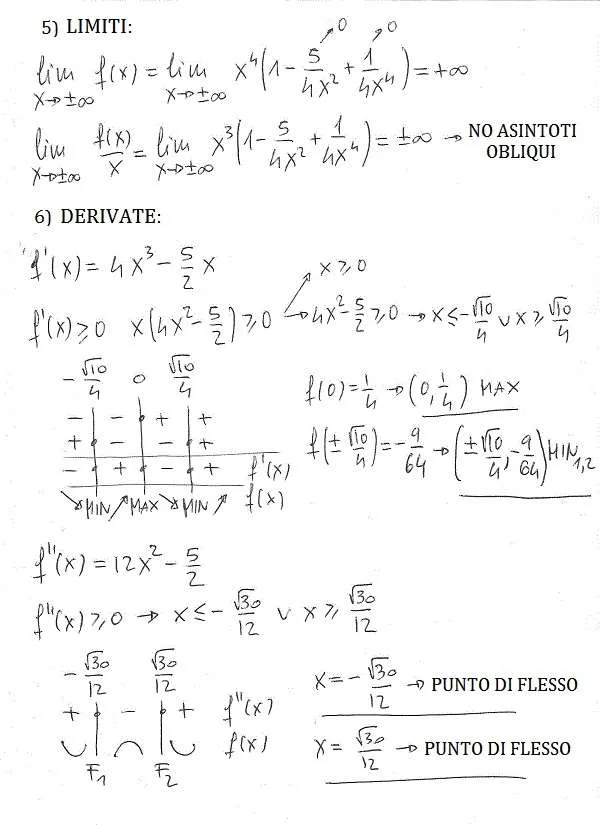 5) LIMITI:
lim x→±∞ f(x) = lim x→±∞ x⁴(1 - 5/4x² + 1/4x⁴) = +∞
→0 →0
lim x→±∞ f(x)/x = lim x→±∞ x³(1 - 5/4x² + 1/4x⁴) = ±∞ → NO ASINTOTI
OBLIQUI
6) DERIVATE:
f'(x) = 4x³ - 5/2 x
f'(x) ≥ 0 x(4x² - 5/2) ≥ 0 → x ≥ 0
→ 4x² - 5/2 ≥ 0 → x ≤ -√10/4 ∪ x ≥ √10/4
-√10/4 0 √10/4
- - + +
+ - - +
- + - + f'(x)
↘ MIN ↗ MAX ↘ MIN ↗ f(x)
f(0) = 1/4 → (0, 1/4) MAX
f(±√10/4) = -9/64 → (±√10/4, -9/64) MIN₁,₂
f''(x) = 12x² - 5/2
f''(x) ≥ 0 → x ≤ -√30/12 ∪ x ≥ √30/12
-√30/12 √30/12
+ - + f''(x)
◡ ◠ ◡ f(x)
F₁ F₂
x = -√30/12 → PUNTO DI FLESSO
x = √30/12 → PUNTO DI FLESSO